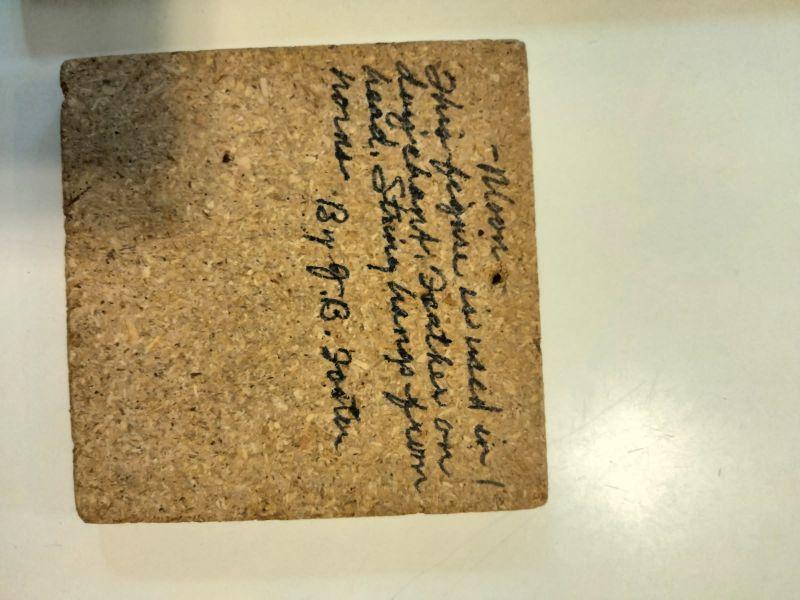 - Moon -
This figure is used in
day chant. Feather on
head. String hangs from
horns. By J. B. Foster